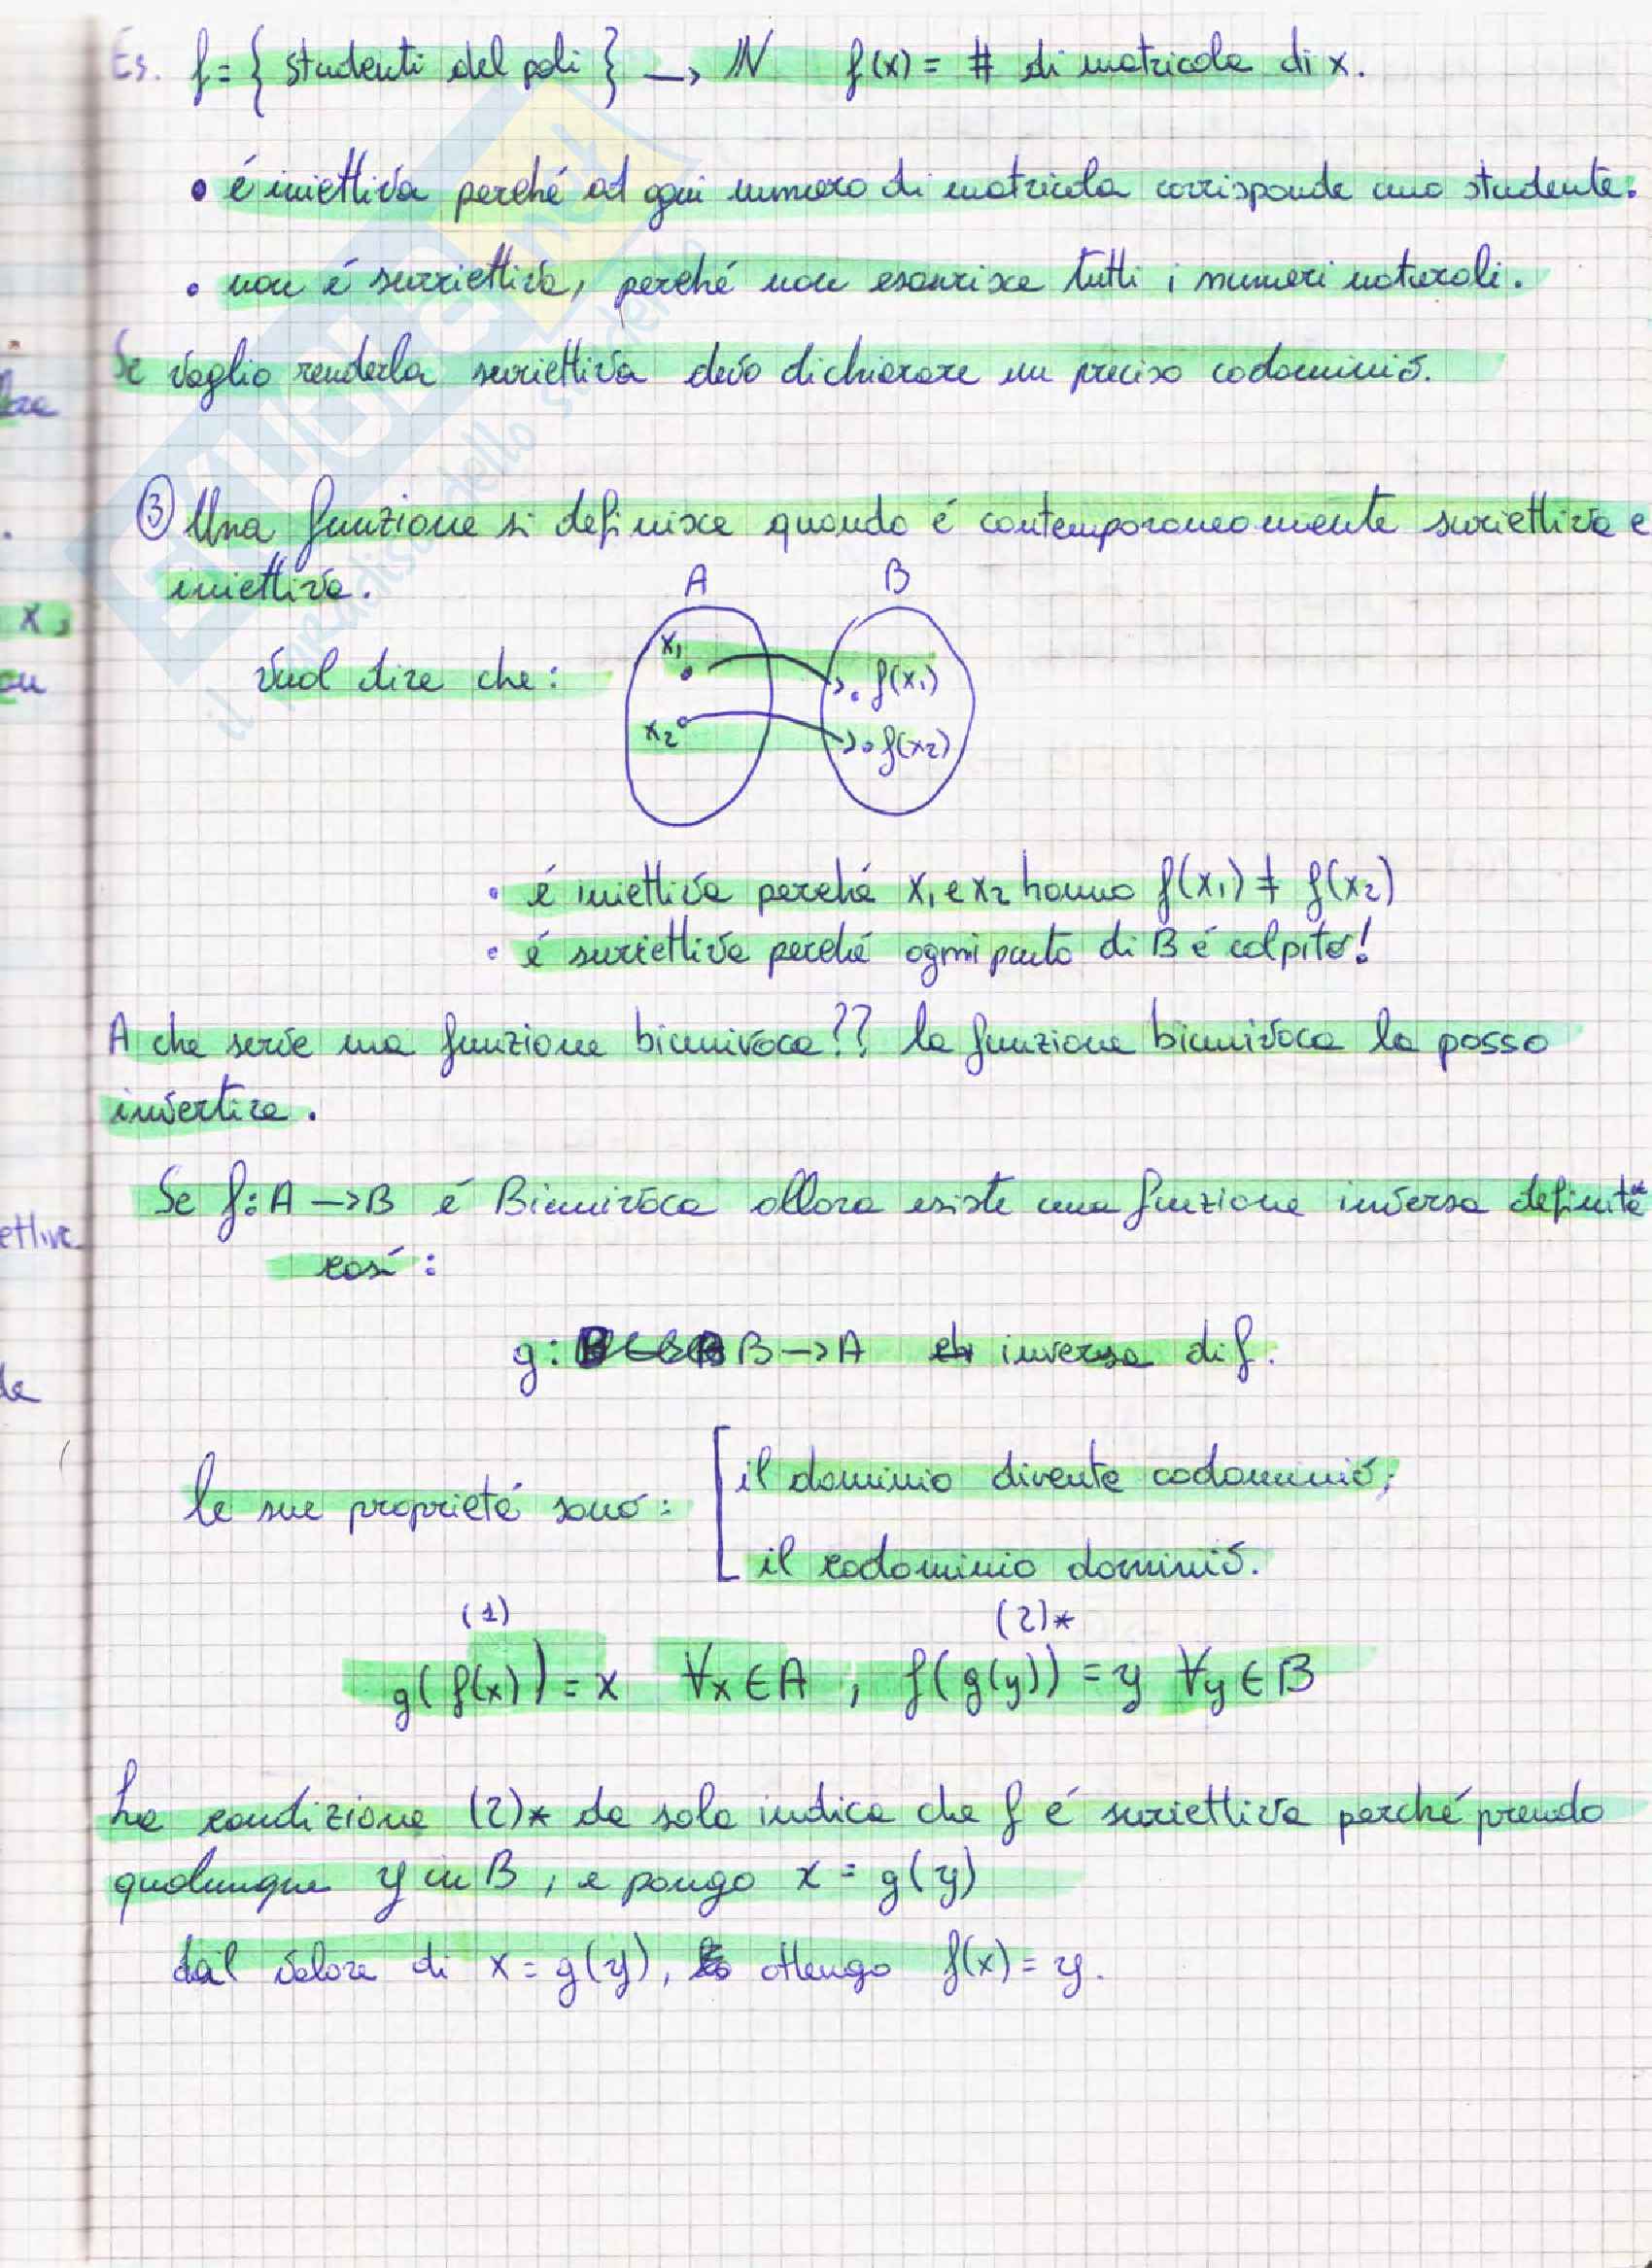 Es. f = { studenti del poli } → ℕ f(x) = # di matricola di x.
• é iniettiva perché ad ogni numero di matricola corrisponde uno studente.
• non é surriettiva, perché non esaurisce tutti i numeri naturali.
Se voglio renderla suriettiva devo dichiarare un preciso codominio.
③ Una funzione si definisce quando é contemporaneamente suriettiva e
iniettiva.
A B
Vuol dire che:
x₁ f(x₁)
x₂ f(x₂)
• é iniettiva perché x₁ e x₂ hanno f(x₁) ≠ f(x₂)
• é suriettiva perché ogni punto di B é colpito!
A che serve una funzione biunivoca?? la funzione biunivoca la posso
invertire.
Se f: A → B é Biunivoca allora esiste una funzione inversa definita
cosí:
g: B → A inversa di f.
le sue proprietá sono: il dominio diventa codominio;
il codominio dominio.
(1) (2)*
g(f(x)) = x ∀x ∈ A , f(g(y)) = y ∀y ∈ B
La condizione (2)* da sola indica che f é suriettiva perché prendo
qualunque y in B, e pongo x = g(y)
dal valore di x = g(y), ottengo f(x) = y.
x,
ettiva
SKUOLA.net
il paradiso dello studente